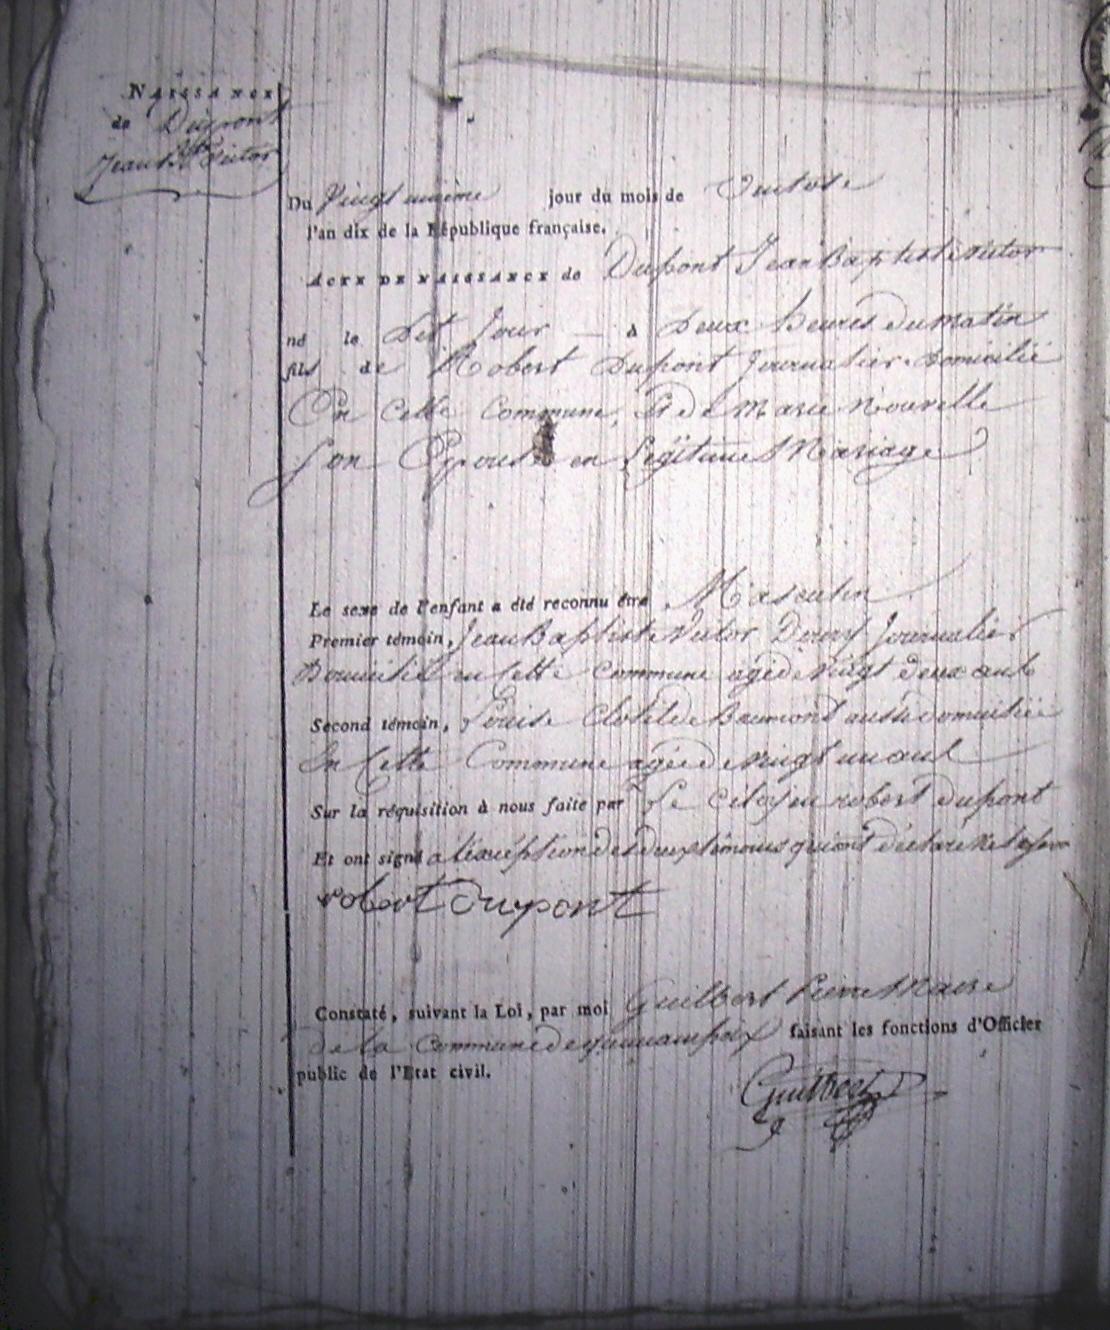 NAISSANCE
de Dupont
Jean Bte Victor
Du Vingt unième jour du mois de Ventose
l'an dix de la République française.
ACTE DE NAISSANCE de Dupont Jean Baptiste Victor
né le Dit Jour à Deux heures du matin
fils de Robert Dupont Journalier domicilié
En Cette Commune, Et de Marie Nouvelle
Son Epouse en Légitime Mariage
Le sexe de l'enfant a été reconnu être Masculin
Premier témoin, Jean Baptiste Victor Journalier
Domicilié en Cette Commune agé de Vingt deux ans
Second témoin, Louise Clotilde Baumont aussi domiciliée
En Cette Commune agée de Vingt un ans
Sur la réquisition à nous faite par Le Citoyen robert dupont
Et ont signé a l'exception des deux témoins qui ont déclaré ne le
robert dupont
Constaté, suivant la Loi, par moi Guilbert Pierre Maire
de la Commune de faisant les fonctions d'Officier
public de l'Etat civil.
Guilbert